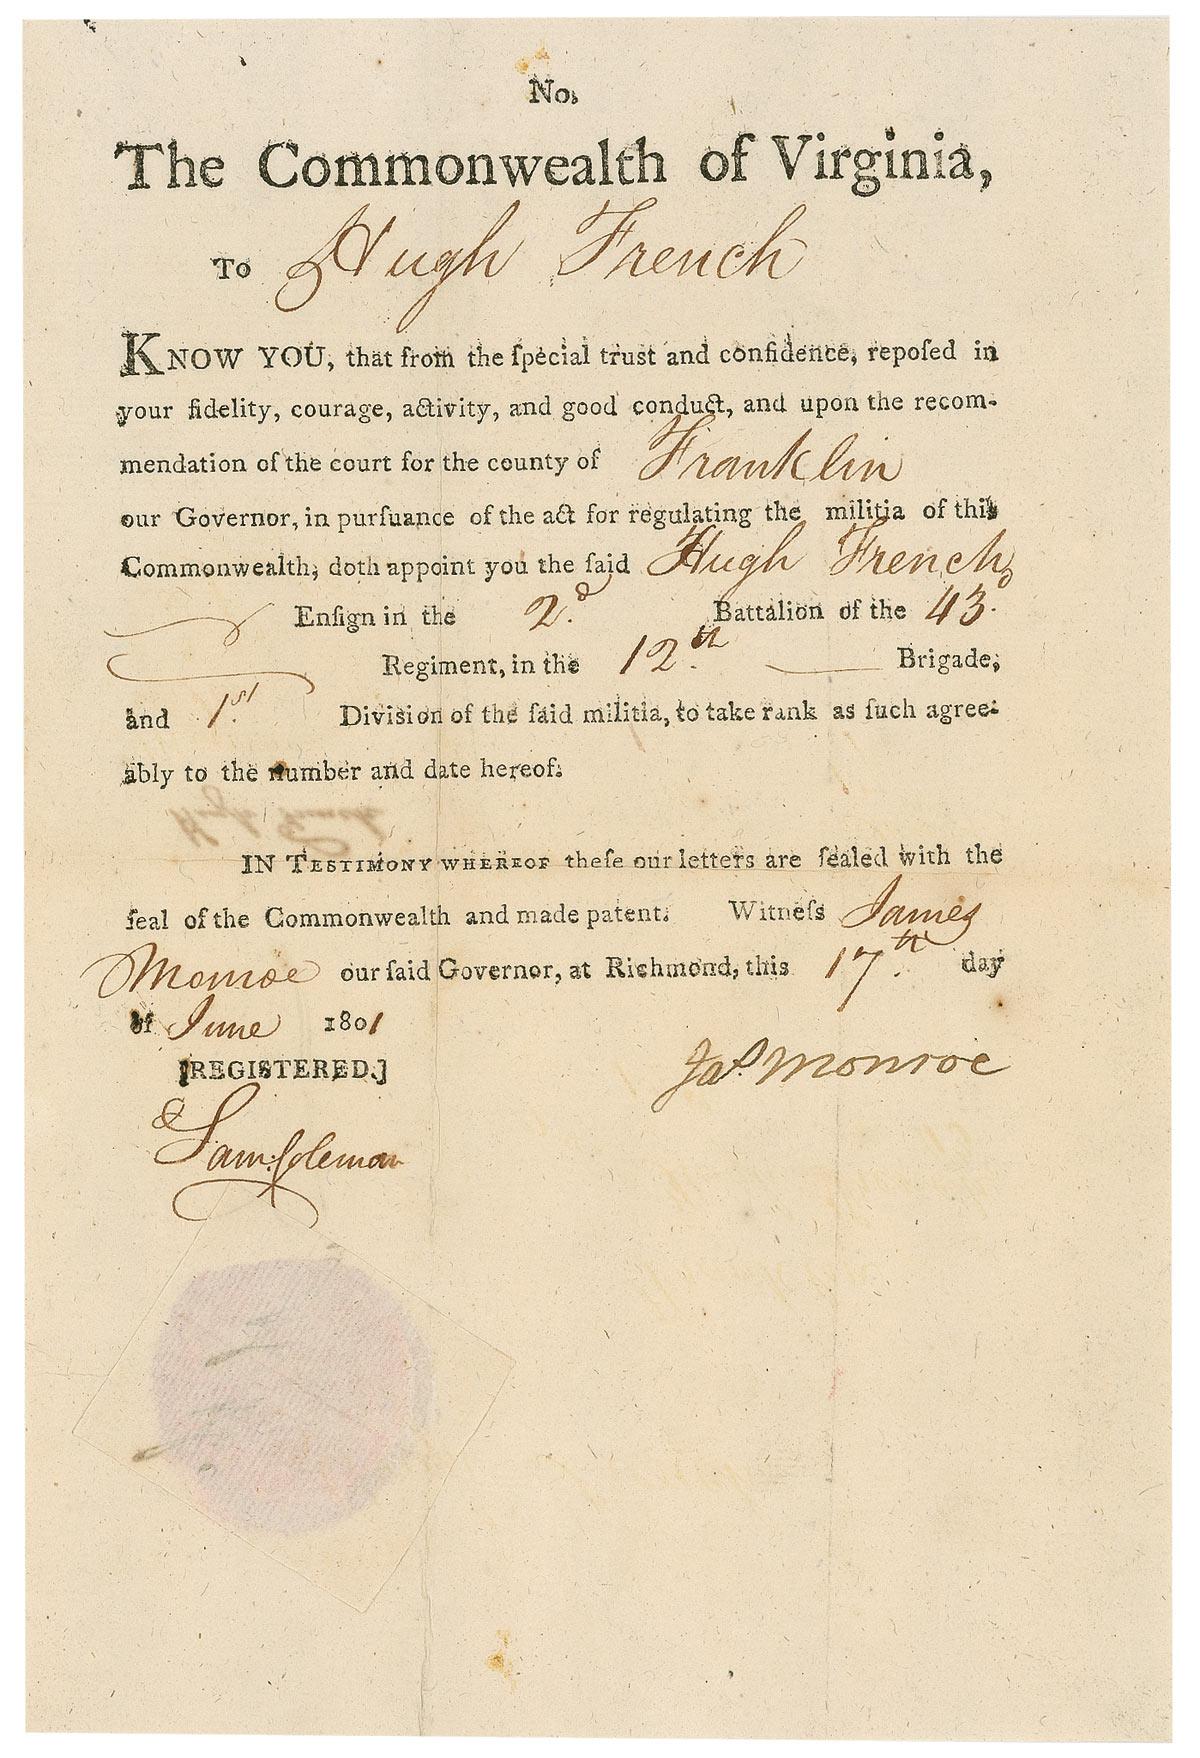 No.
The Commonwealth of Virginia,
To Hugh French
KNOW YOU, that from the ſpecial trust and confidence, repoſed in
your fidelity, courage, activity, and good conduct, and upon the recom-
mendation of the court for the county of Franklin
our Governor, in purſuance of the act for regulating the militia of this
Commonwealth, doth appoint you the ſaid Hugh French
Enſign in the 2.d Battalion of the 43.d
Regiment, in the 12.th Brigade,
and 1.st Diviſion of the ſaid militia, to take rank as ſuch agree-
ably to the number and date hereof.
Hugh French
IN TESTIMONY WHEREOF theſe our letters are ſealed with the
ſeal of the Commonwealth and made patent. Witneſs James
Monroe our ſaid Governor, at Richmond, this 17.th day
of June 1801
[REGISTERED.] Jas. Monroe
Sam: Coleman